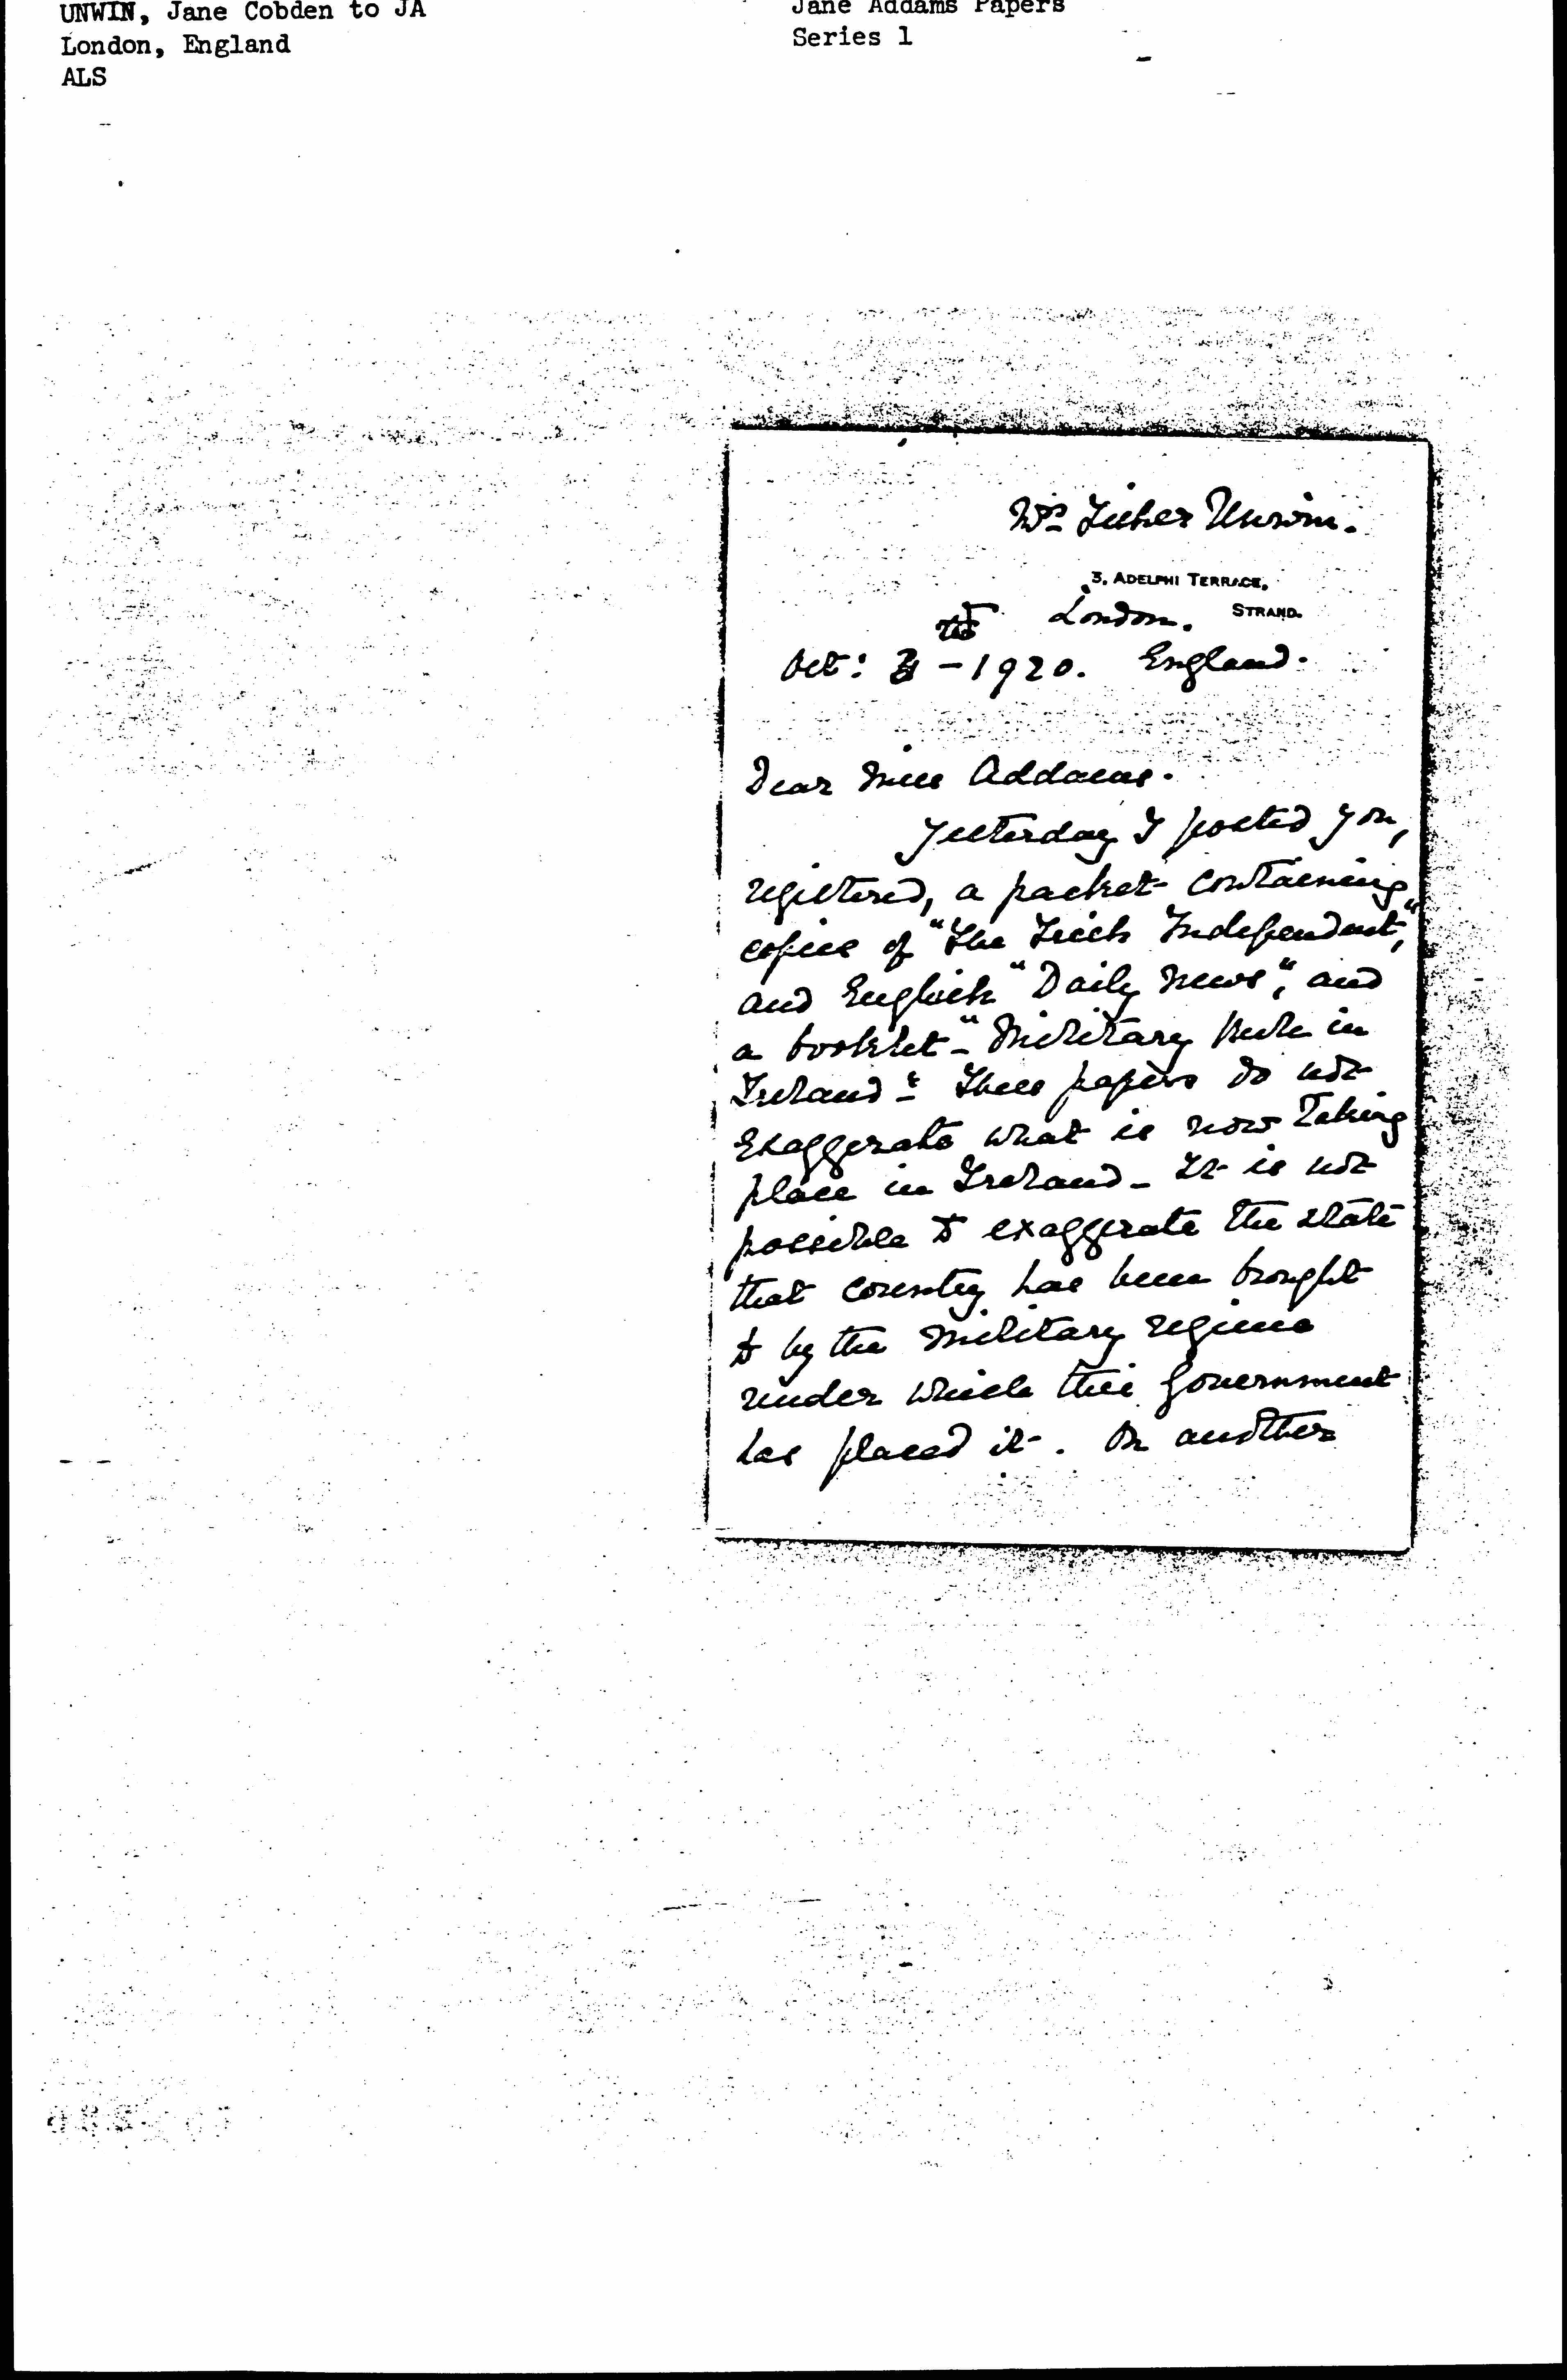 UNWIN, Jane Cobden to JA
London, England
ALS
Jane Addams Papers
Series 1
Mrs Fisher Unwin.
3, ADELPHI TERRACE,
London. STRAND.
Oct: - 1920. England.
Dear Miss Addams.
Yesterday I posted you,
registered, a packet containing
copies of "The Irish Independent,"
and English "Daily News", and
a booklet - "Military Rule in
Ireland". These papers do not
exaggerate what is now taking
place in Ireland - It is not
possible to exaggerate the state
that country has been brought
to by the military regime
under which this Government
has placed it. On another